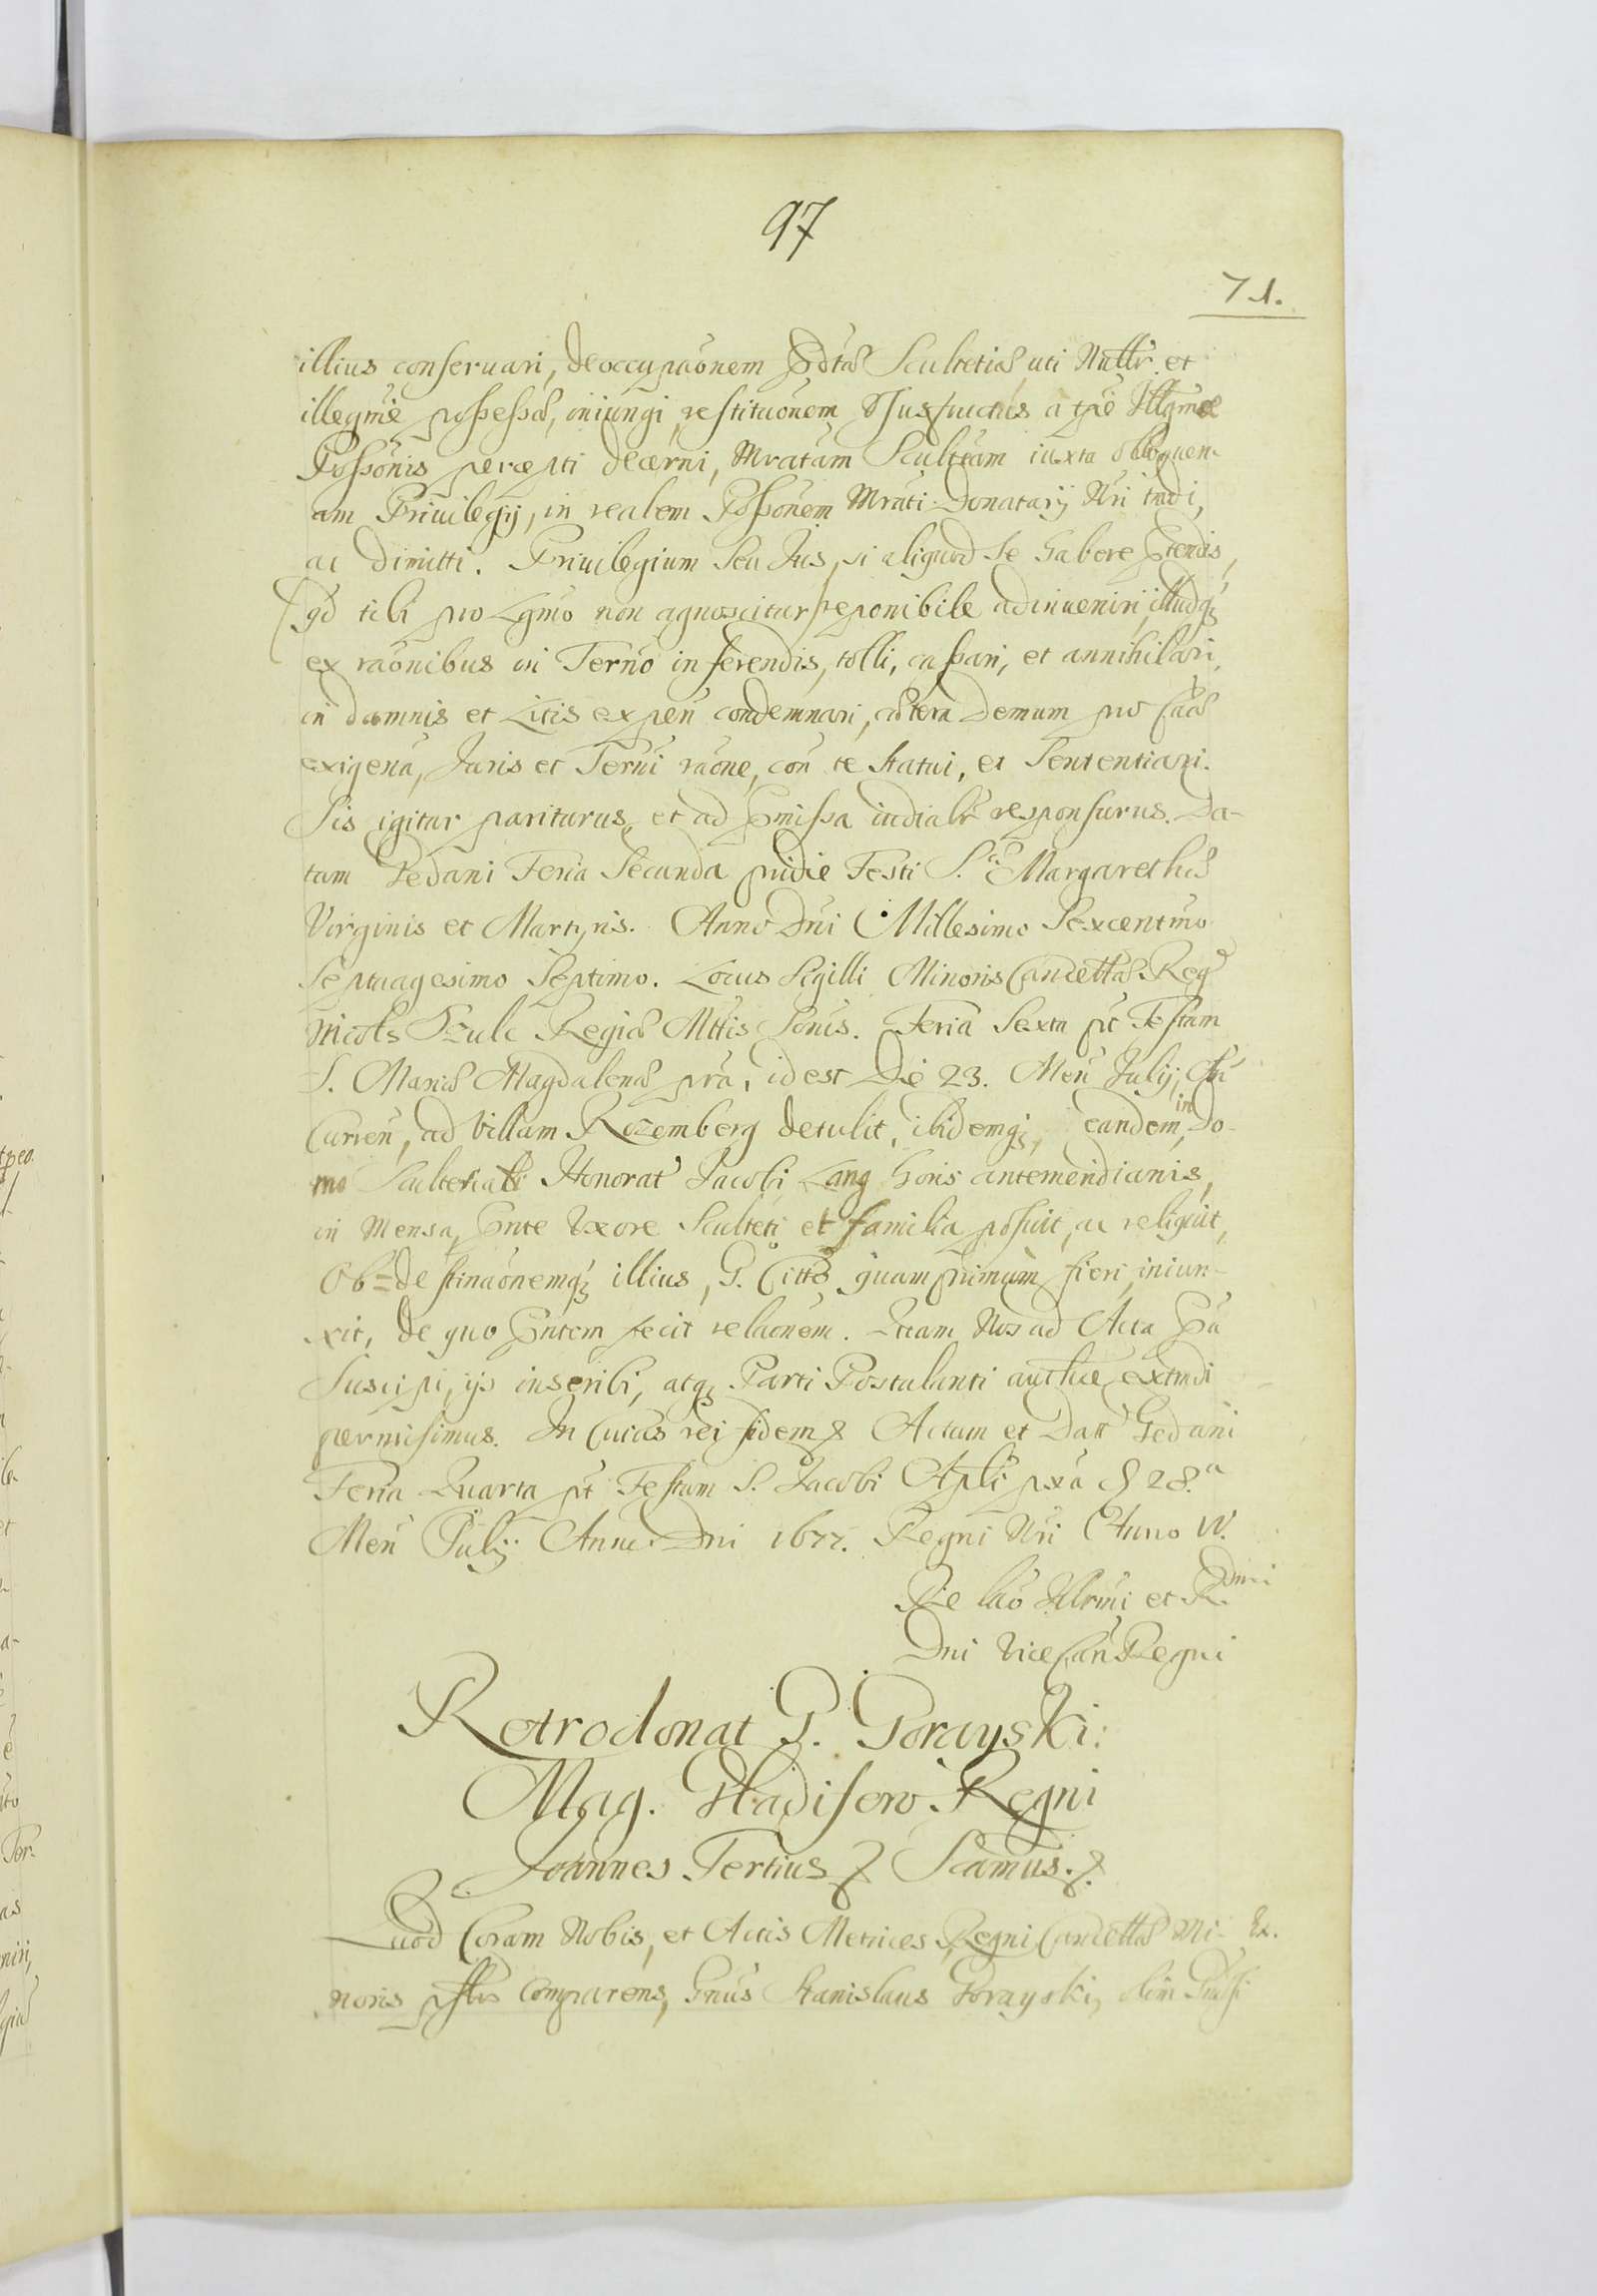 97
71.
illius conseruari, deoccupaõnem p̃dtæ Scultetiæ, uti Nullr̃ et
illegm̃e possessæ, iniungi, restituõnem Vsusfructus a tp̃e Illgmæ
Possõnis percepti decerni, Mratam Scultetiam iuxta obloquen-
am Priuilegij, in realem Possõnem Mrati Donatarij Nri tradi,
ac dimitti. Priuilegium seu Jus, si aliquod se habere p̃tendis,
(qd tibi pro Lgmo non agnoscitur) reponibile adinueniri, illudq3
ex raõnibus in Terño inferendis, tolli, cassari, et annihilari,
in damnis et Litis expen̄ condemnari, cætera demum pro cãæ
exigena, Juris et Terñi raõne, con̄ te statui, et Sententiari.
Sis igitur pariturus, et ad p̃missa iudialr̃ responsurus. Da-
tum Gedani Feria Secunda pridie Festi S. Margarethæ
Virginis et Martyris. Anno Dni Millesimo Sexcentmo
Septuagesimo Septimo. Locus Sigilli Minoris Cancellæ Reg
Nicols Szulc Regiæ Mttis Sonis. Feria Sexta pt Festum
S. Mariæ Magdalenæ pxa, id est Die 23. Men̄ Julij, Añi
Curren̄, ad Villam Rozemberg detulit, ibidemq3, eandem, in Do-
mo Scultetiali Honorat Jacobi Lang horis antemeridianis,
in Mensa, p̃nte Uxore Sculteti et familia posuit, ac reliquit,
Ob=destinaõnemq3 illius, G. Citto quamprimum fieri iniun-
xit, de quo p̃ntem fecit relaõnem. Quam Nos ad Acta p̃na
Suscipi, ijs inscribi, atq3 Parti Postulanti authce extradi
permisimus. In Cuius rei fidem Actum et Datt Gedani
Feria Quarta pt Festum S. Jacobi Apli pxa d 28.a
Men̄ Julij Anno Dni 1677. Regni Nri Anno IV.
Re laõ Illrmi et R.dmi
Dni Vice Can̄ Regni
Retrodonat G. Gorayski:
Mag. Gladifero Regni
Joannes Tertius Scamus.
Quod Coram Nobis, et Actis Metrices Regni Cancellæ Mi- Ex.
noris psllr comparens, Gnus Stanislaus Gorayski, olim